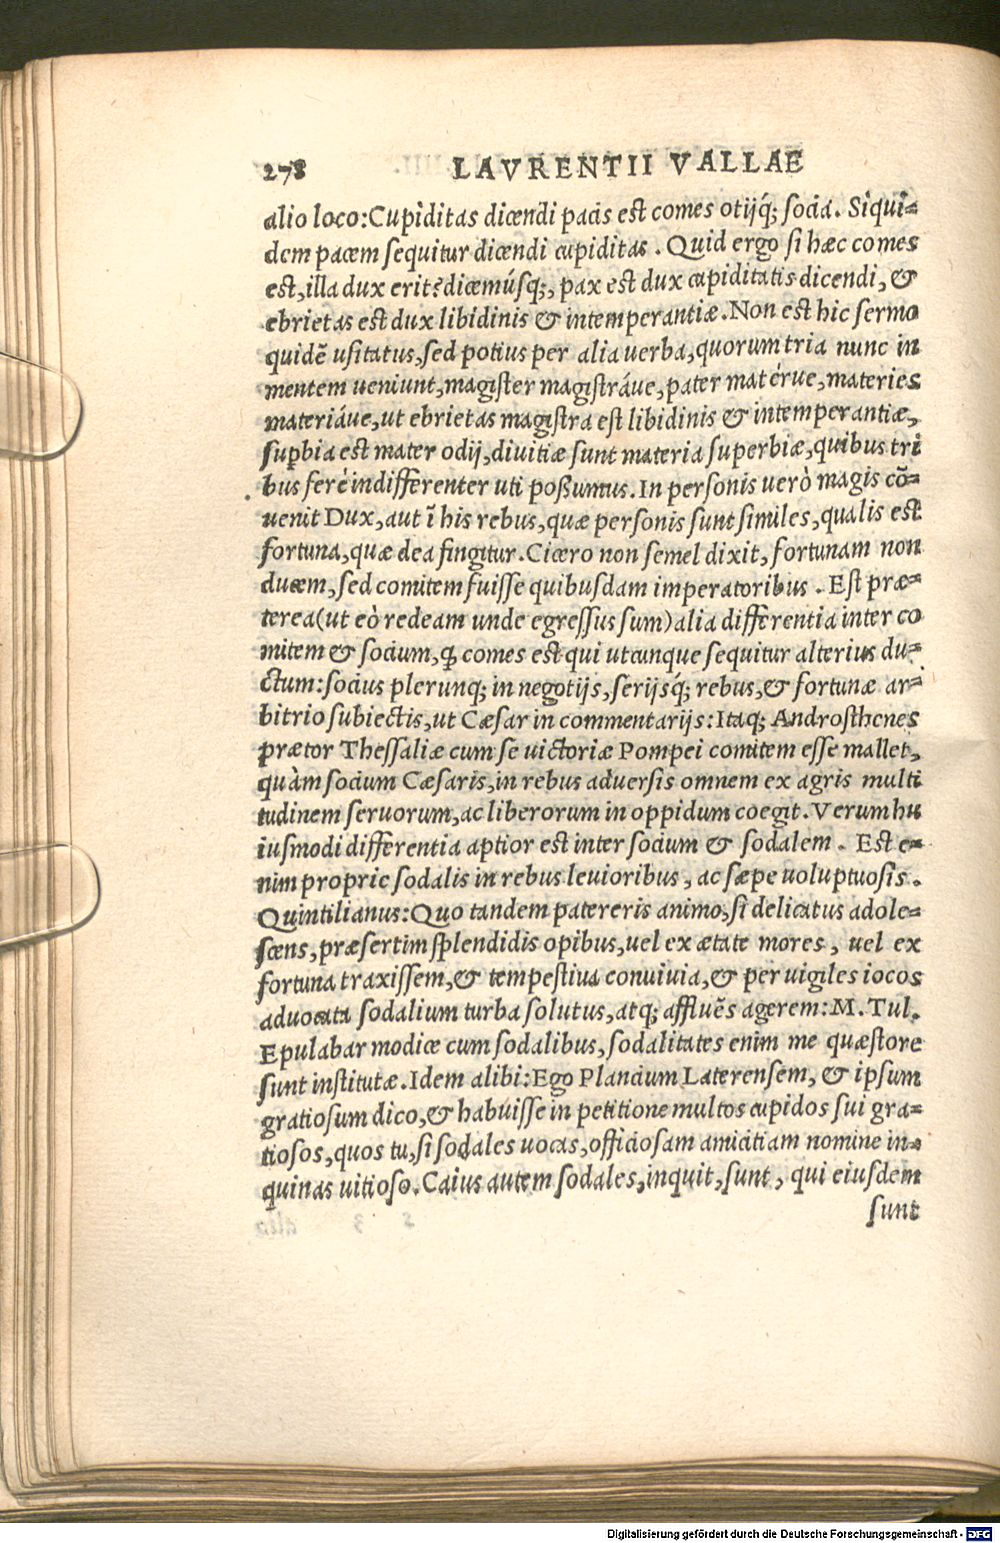 278 LAVRENTII VALLAE
alio loco:Cupiditas dicendi pacis est comes otijq́; socia. Siqui-
dem pacem sequitur dicendi cupiditas. Quid ergo si hæc comes
est,illa dux erit? dicemúsq;, pax est dux cupiditatis dicendi, &
ebrietas est dux libidinis & intemperantiæ. Non est hic sermo
quidē usitatus,sed potius per alia uerba,quorum tria nunc in
mentem ueniunt,magister magistráue,pater matérue,materies
materiáue,ut ebrietas magistra est libidinis & intemperantiæ,
suꝑbia est mater odij,diuitiæ sunt materia superbiæ,quibus tri
bus ferè indifferenter uti poßumus. In personis uerò magis cō-
uenit Dux,aut ī his rebus,quæ personis sunt similes,qualis est
fortuna,quæ dea fingitur. Cicero non semel dixit,fortunam non
ducem,sed comitem fuisse quibusdam imperatoribus. Est præ-
terea(ut eò redeam unde egressus sum)alia differentia inter co
mitem & socium,ꝙ comes est qui utcunque sequitur alterius du-
ctum:socius plerunq; in negotijs,serijsq́; rebus,& fortunæ ar-
bitrio subiectis,ut Cæsar in commentarijs:Itaq; Androsthenes
prætor Thessaliæ cum se uictoriæ Pompei comitem esse mallet,
quàm socium Cæsaris,in rebus aduersis omnem ex agris multi
tudinem seruorum,ac liberorum in oppidum coegit. Verum hu
iusmodi differentia aptior est inter socium & sodalem. Est e-
nim proprie sodalis in rebus leuioribus, ac sæpe uoluptuosis.
Quintilianus:Quo tandem patereris animo,si delicatus adole-
scens,præsertim splendidis opibus,uel ex ætate mores, uel ex
fortuna traxissem,& tempestiua conuiuia,& per uigiles iocos
aduocata sodalium turba solutus,atq; affluēs agerem: M. Tul.
Epulabar modice cum sodalibus,sodalitates enim me quæstore
sunt institutæ. Idem alibi:Ego Plancium Laterensem, & ipsum
gratiosum dico,& habuisse in petitione multos cupidos sui gra-
tiosos,quos tu,si sodales uocas,officiosam amicitiam nomine in-
quinas uitioso. Caius autem sodales,inquit,sunt, qui eiusdem
sunt
Digitalisierung gefördert durch die Deutsche Forschungsgemeinschaft - DFG